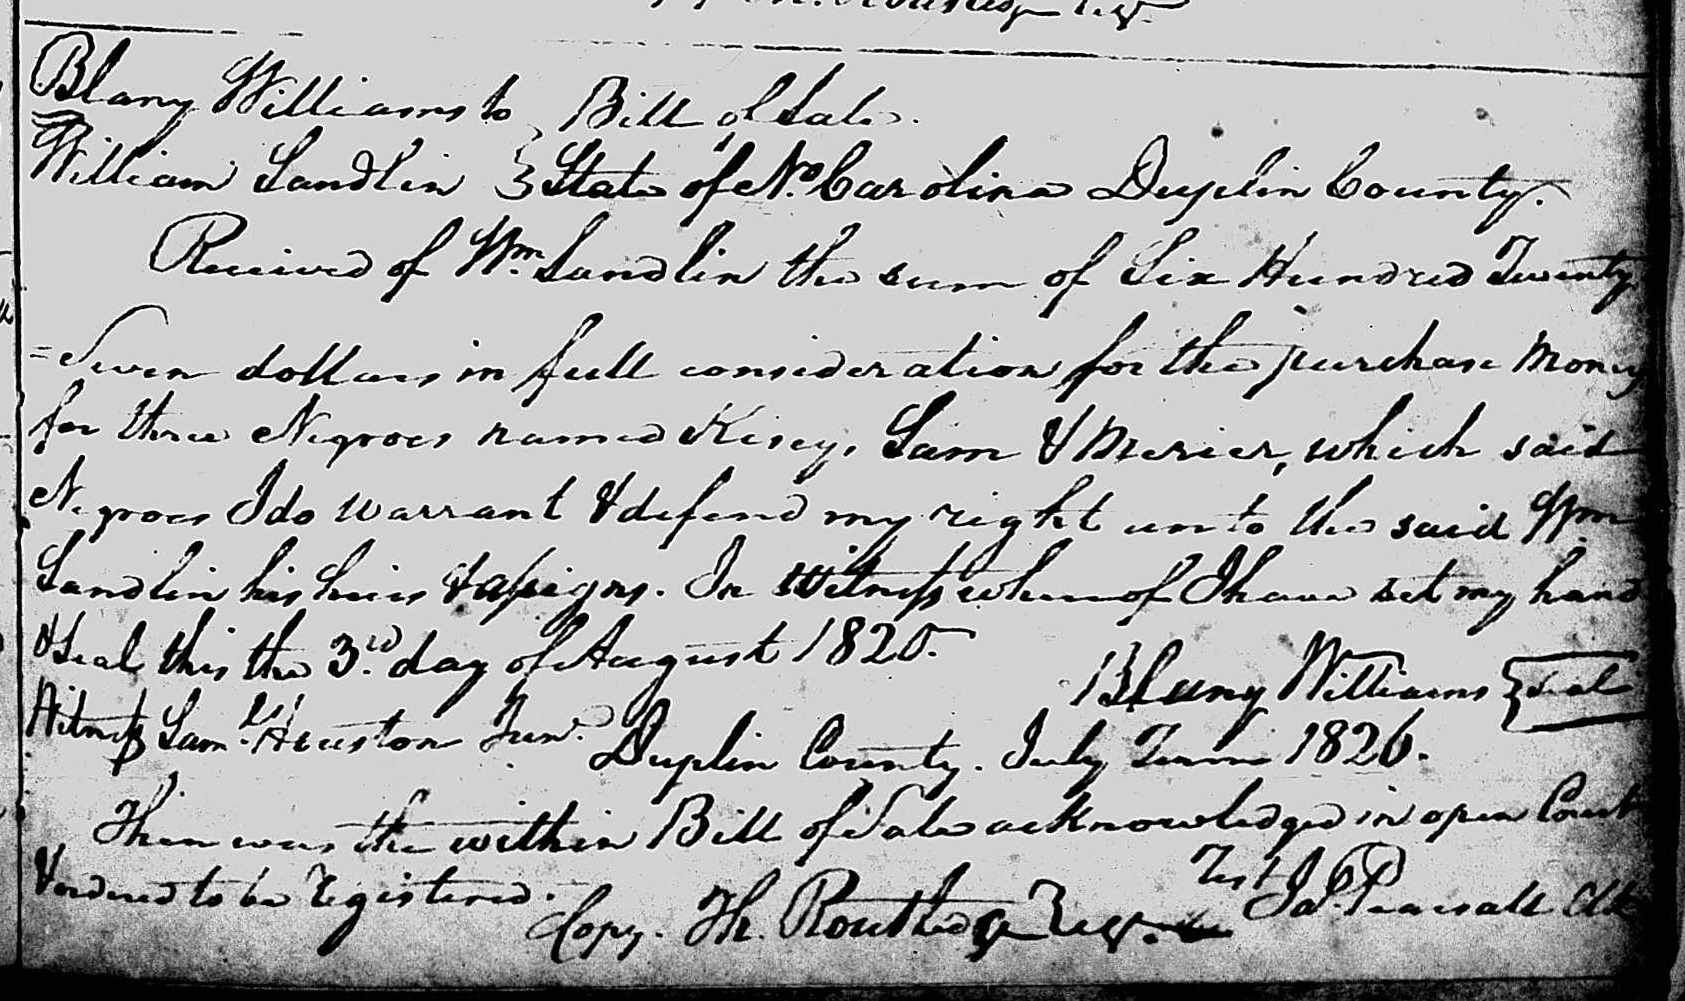 Blany Williams to } Bill of Sale.
William Sandlin } State of No. Carolina Duplin County.
Received of Wm. Sandlin the sum of Six Hundred Twenty
=Seven dollars in full consideration for the purchase Money
for three Negroes named Kisey, Sam & Merier, which said
Negroes I do warrant & defend my right unto the said Wm.
Sandlin his heirs & assigns. In witness whereof I have set my hand
& Seal this the 3rd. day of August 1825.
Blany Williams {Seal
Witness Saml. Houston Junr.
Duplin County. July Term 1826.
Then was the within Bill of Sale acknowledged in open Court
& ordered to be registered.
Test Jas. Pearsall Clk
Copy. Th. Routledge Regr.